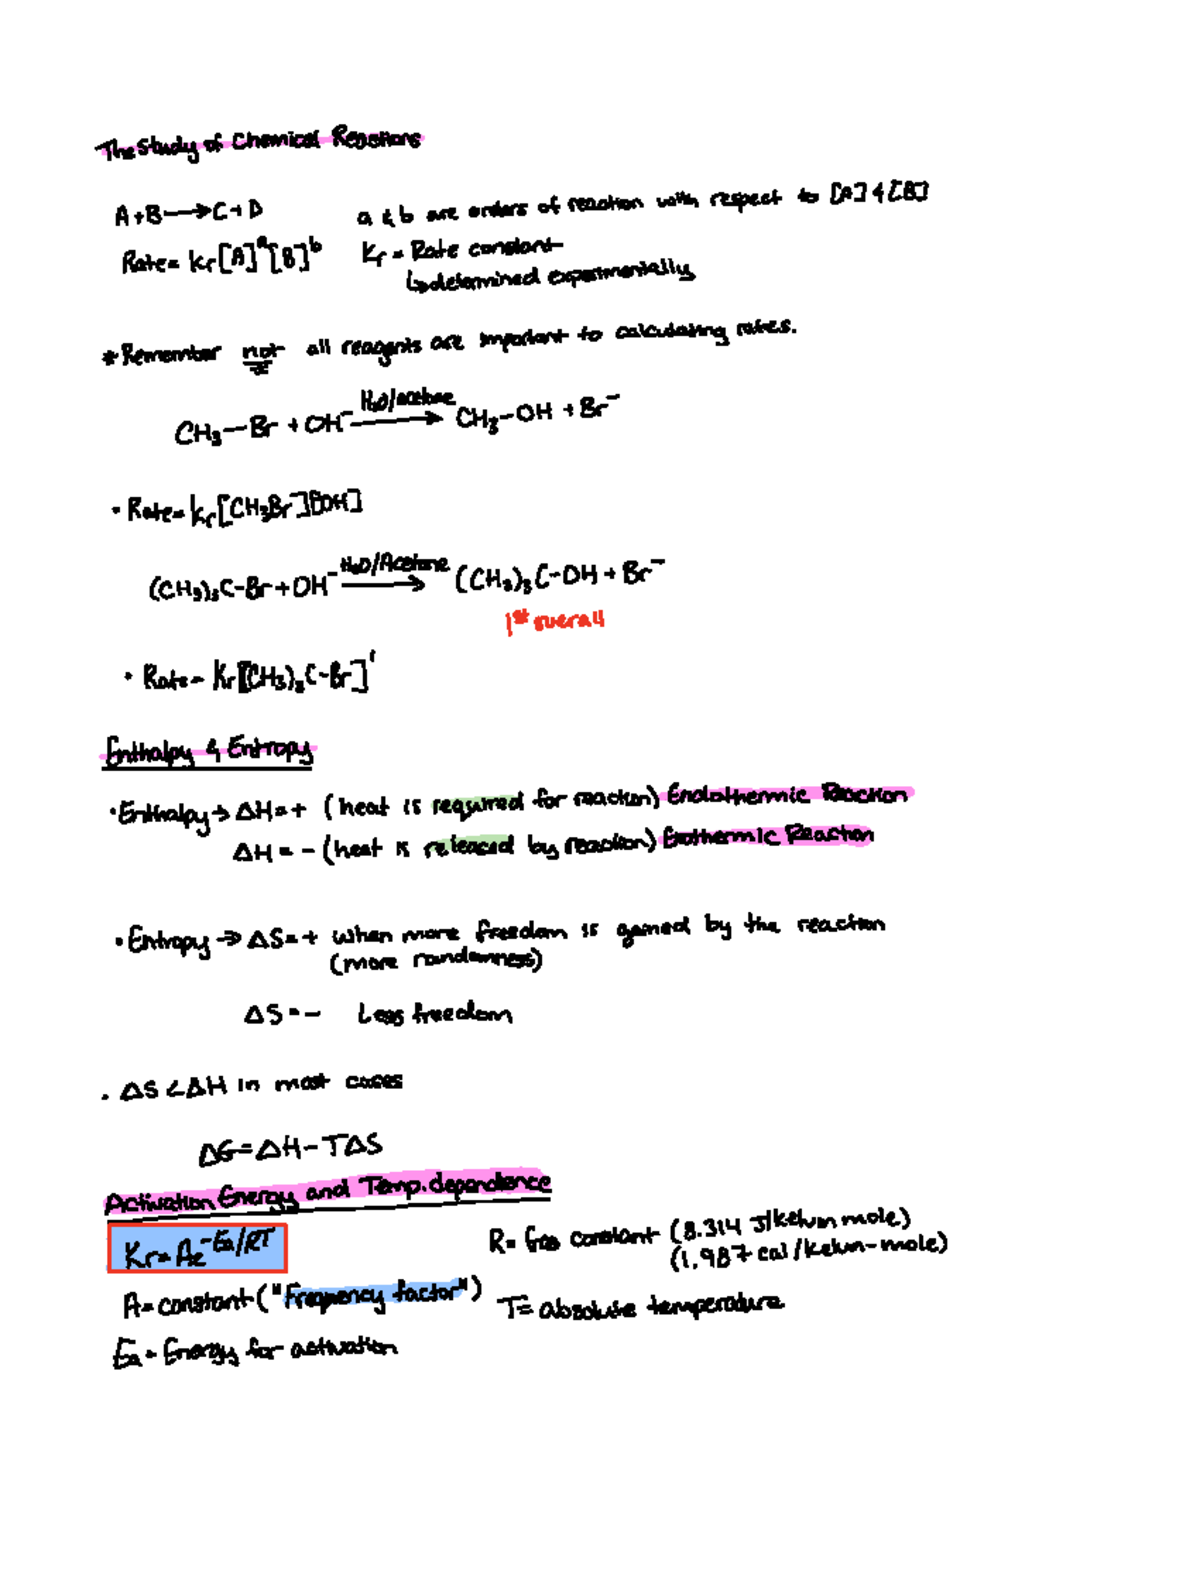 The Study of Chemical Reactions
A+B⟶C+D
a & b are orders of reaction with respect to [A] & [B]
Rate= kr[A]^a[B]^b
Kr = Rate constant
↳determined experimentally
* Remember not all reagents are important to calculating rates.
H₂O/acetone
CH₃—Br + OH⁻ ⟶ CH₃-OH + Br⁻
• Rate= kr[CH₃Br][OH]
H₂O/Acetone
(CH₃)₃C-Br+OH⁻ ⟶ (CH₃)₃C-OH + Br⁻
1st overall
• Rate= Kr[(CH₃)₃C-Br]¹
Enthalpy & Entropy
• Enthalpy → ΔH=+ (heat is required for reaction) Endothermic Reaction
ΔH = - (heat is released by reaction) Exothermic Reaction
• Entropy → ΔS=+ when more freedom is gained by the reaction
(more randomness)
ΔS=- Less freedom
. ΔS<ΔH in most cases
ΔG=ΔH-TΔS
Activation Energy and Temp. dependence
Kr=Ae^-Ea/RT
R= Gas constant (8.314 J/kelvin mole)
(1.987 cal/kelvin-mole)
A=constant ("Frequency factor")
T= absolute temperature
Ea = Energy for activation